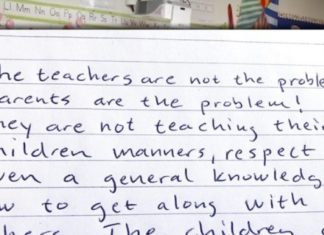 Ll Mm Nn Oo Pp Qq Rr Ss Tt
he teachers are not the proble
arents are the problem!
hey are not teaching their
hildren manners, respect
ven a general knowledg
ow to get along with
hers. The children